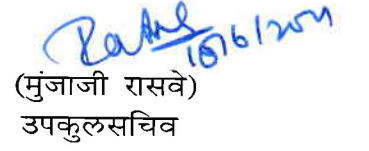 16/6/2011
(मुंजाजी रासवे)
उपकुलसचिव